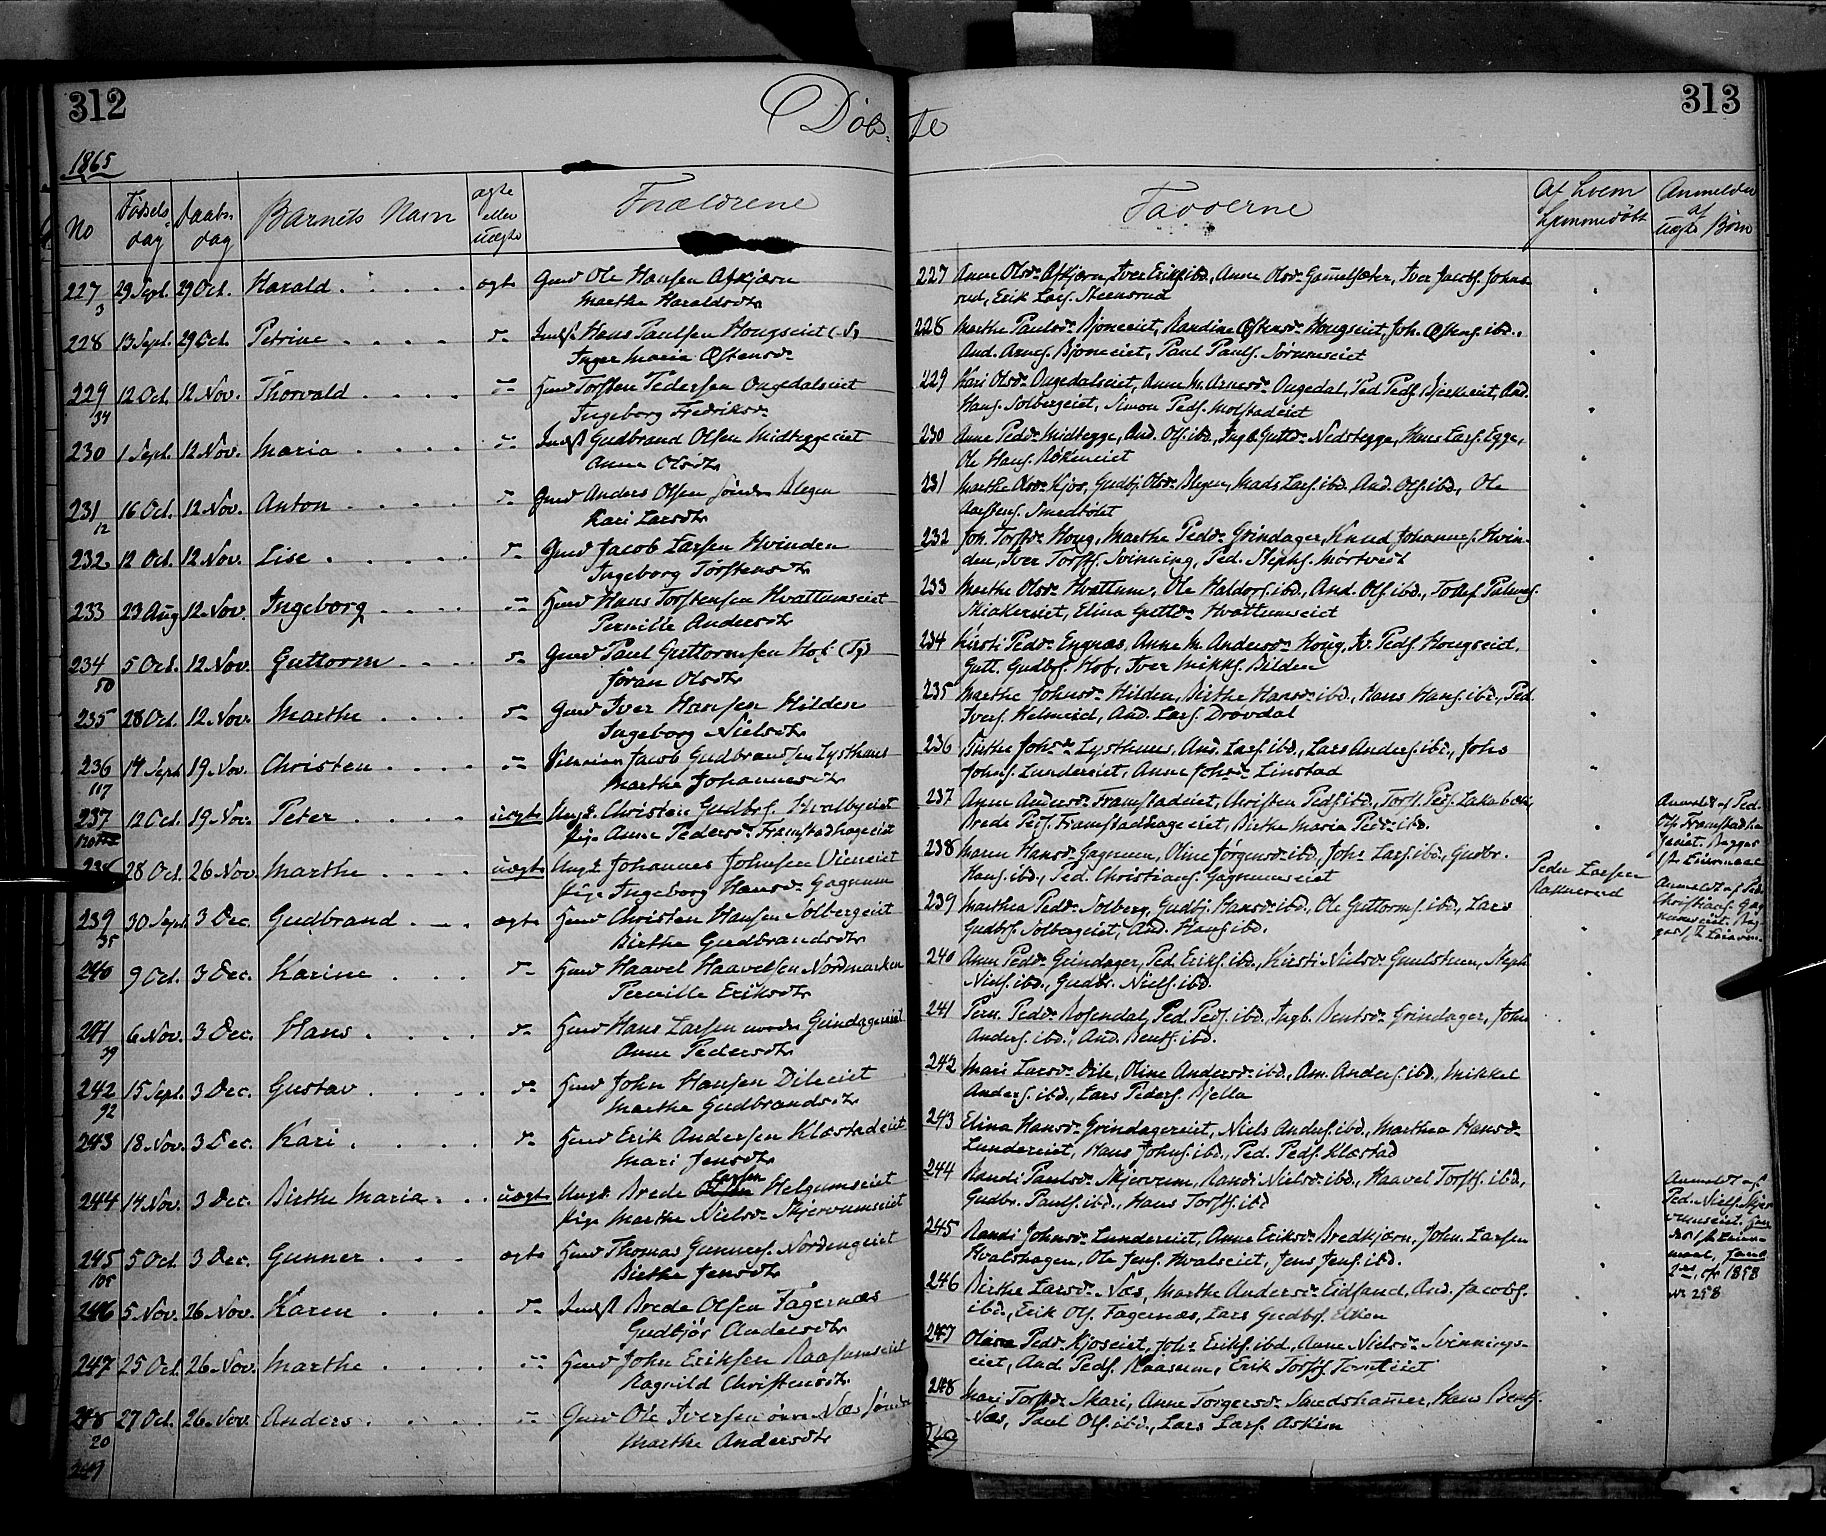 312
Döbte
313
1865
No
Fødsels dag
Daabs dag
Barnets Navn
ægte eller uægte
Forældrene
Fadderne
Af hvem hjemmedøbt
Anmeldes af uægte Børn
227 29 Sept. 29 Oct. Harald ægte Gmd Ole Hansen
3 Marthe Haraldsdtr
228 13 Sept. 29 Oct. Petrine Indst Hans Paulsen Hougseiet
Inger Maria Østensdr
229 12 Oct. 12 Nov. Thorvald Hmd Torsten Pedersen Ongedalseiet
34 Ingeborg Fredriksdr
230 1 Sept. 12 Nov. Maria Indst Gudbrand Olsen Midteggeeiet
Anne Olsdtr
231 16 Oct. 12 Nov. Anton Gmd Anders Olsen søndr Blegen
12 Kari Larsdtr
232 12 Oct. 12 Nov. Lise Gmd Jacob Larsen Hvinden
Ingeborg Torstensdtr
233 23 Aug 12 Nov. Ingeborg Hmd Hans Torstensen Hvattumseiet
Pernille Andersdtr
234 5 Oct. 12 Nov. Guttorm Gmd Paul Guttormsen Hof
50 Jøran Olsdtr
235 28 Oct. 12 Nov. Marthe Gmd Iver Hansen Hilden
Ingeborg Nielsdtr
236 14 Sept 19 Nov. Christen Jacob Gudbrandsen Lysthaus
117 Marthe Johannesdtr
237 12 Oct. 19 Nov. Peter uægte Ungk. Christen Gudbrs.
Pige Anne Pedersdr Framstadhageeiet
238 28 Oct. 26 Nov. Marthe uægte Ungk. Johannes Johnsen
Pige Ingeborg Hansdr Gagnum
239 30 Sept. 3 Dec. Gudbrand ægte Hmd Christen Hansen Solbergeiet
35 Birthe Gudbrandsdtr
240 9 Oct. 3 Dec. Karine Hmd Haavel Haavelsen Nordmarken
Pernille Eriksdtr
241 6 Nov. 3 Dec. Hans Hmd Hans Larsen nordre Grindagereiet
39 Anne Pedersdtr
242 15 Sept. 3 Dec. Gustav Hmd John Hansen Dihleeiet
92 Marthe Gudbrandsdtr
243 18 Nov. 3 Dec. Kari Hmd Erik Andersen Klæstadeiet
Mari Jensdtr
244 14 Nov. 3 Dec. Birthe Maria uægte Ungk. Brede Larsen Helgumseiet
Pige Marthe Nielsdr Skjervumseiet
245 5 Oct. 3 Dec. Gunner ægte Hmd Thomas Gunners. Nordengeiet
105 Birthe Jensdtr
246 5 Nov. 26 Nov. Karen Indst Brede Olsen Fagernæs
Gudbjør Andersdtr
247 25 Oct. 26 Nov. Marthe Hmd John Eriksen Raasumseiet
Ragnild Christensdtr
248 27 Oct. 26 Nov. Anders Gmd Ole Iversen Næs
20 Marthe Andersdtr
249
227 Anne Olsdr Iver Eriks. ibd., Anne Olsdr Iver Jacobs. Johns
rud, Erik Lars. Steensrud
228 Marthe Paulsdr Bjoneeiet, Randine Østensdr Hougseiet, Joh. Østens. ibd.,
And. Arnes. Bjoneeiet, Paul Pauls. Sørumseiet
229 Kari Olsdr Ongedalseiet, Anne M. Arnesdr Ongedal, Ped. Peds. And.
Hans. Solbergeiet, Simon Peds. Molstadeiet
230 Anne Pedsdr Midtegge, And. Ols. ibd., Ingb. Guttdr Nedregge, Hans Lars. Egge,
Ole Hans.
231 Marthe Olsdr Kjos, Gudbj. Olsdr Blegen, Mads Lars. ibd., And. Ols. ibd., Ole
Smedtølet
232 Joh. Torstdr Houg, Marthe Pedsdr Grindager, Knud Johannes. Hvin-
den, Iver Torsts. Svinning, Ped.
233 Marthe Olsdr Hvattum, Ole Haldors. ibd., And. Ols. ibd., Tollef
Skiakereiet, Elina Guttdr Hvattumseiet
234 Kirsti Pedsdr Engnæs, Anne M. Andersdr Houg, Peds. Hougseiet,
Gutt. Gudbrs. Hof, Iver Mikkels. Bilden
235 Marthe Johnsdr Hilden, Birthe Hansdr ibd., Hans Hans. ibd., Ped.
Ivers. And. Lars. Drovdal
236 Birthe Johsdr Lysthuus, And. Lars. ibd., Lars Anders. ibd., Johs
Johns. Lundereiet, Anne Johsdr Linstad
237 Anne Andersdr Framstadeiet, Christen Peds. ibd., Torst. Peds.
Brede Peds. Framstadhageeiet, Birthe Maria Pedsdr ibd.
238 Maren Hansdr Gagnum, Oline Jørgensdr ibd., Johs Lars. ibd., Gudbr.
Hans. ibd., Ped. Christians. Gagnumseiet
Peder Larsen
239 Marthea Pedsdr Solberg, Gudbj. Hansdr ibd., Ole Guttorms. ibd., Lars
Gudbrs. Solbergeiet, And. Hans. ibd.
240 Anne Pedsdr Grindager, Ped. Eriks. ibd., Kirsti Nielsdr
Niels. ibd., Gudbr. Niels. ibd.
241 Pern. Pedsdr Rosendal, Ped. Peds. ibd., Ingb. Bentsdr Grindager, Johs
Anders. ibd., And. Bents. ibd.
242 Mari Larsdr Dihle, Oline Andersdr ibd., Am. Anders. ibd., Mikkel
Anders. ibd., Lars Peders. Bjella
243 Elina Hansdr Grindagereiet, Niels Anders. ibd., Marthea Hansdr
Lundereiet, Hans Johns. ibd., Ped. Peds. Klæstad
244 Randi Paulsdr Skjervum, Randi Nielsdr ibd., Haavel Torsts. ibd.,
Gudbr. Pauls. ibd., Hans Torsts. ibd
245 Randi Johnsdr Lundereiet, Anne Eriksdr Bredkjern, John Larsen
Hvalshagen, Ole Jens. Hvalseiet, Jens Jens. ibd.
246 Birthe Larsdr Næs, Marthe Andersdr Eidsand, And. Jacobs.
ibd., Erik Ols. Fagernæs, Lars Gudbrs.
247 Oliana Pedsdr Kjoseiet, Johs Eriks. ibd., Anne Nielsdr Svinnings-
eiet, And. Peds. Raasum, Erik Torsts.
248 Mari Torstdr Skari, Anne Torgersdr Smedshammer, Hans Bents.
Næs, Paul Ols. ibd., Lars Lars. Askim
249
Anmeldt af Ped.
Ols. Framstadha
geeiet. Begges
1ste Leiermaal
Anmeldt af Ped.
Christians. Gag
numseiet. Beg
ges 1ste Leierm.
Anmeldt af
Ped. Niels. Skjer
vumseiet.
1ste Leier-
maal,
2det, cfr 1858
No 258